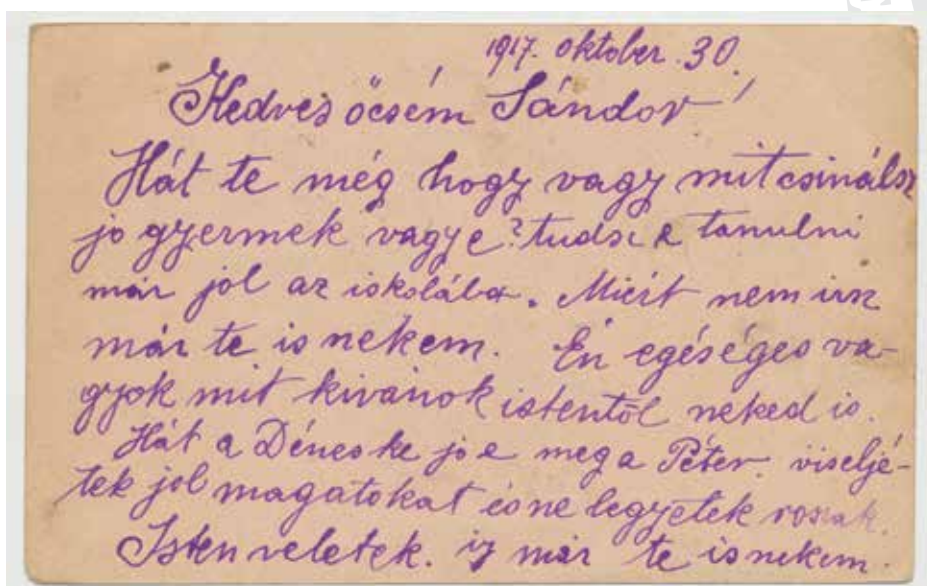 1917. oktober. 30.
Kedves öcsém Sándor!
Hát te még hogy vagy mit csinálsz
jo gyermek vagy e? tudsz e tanulni
már jol az iskolába. Miért nem irsz
már te is nekem. Én egéséges va-
gyok mit kivánok istentöl neked is.
Hát a Déneske jo e meg a Péter. viseljé-
tek jol magatokat és ne legyetek roszak.
Isten veletek. ij már te is nekem.